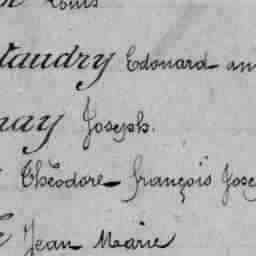 Louis
taudry Edouard an
nay Joseph.
Théodore françois Jose
Jean Marie